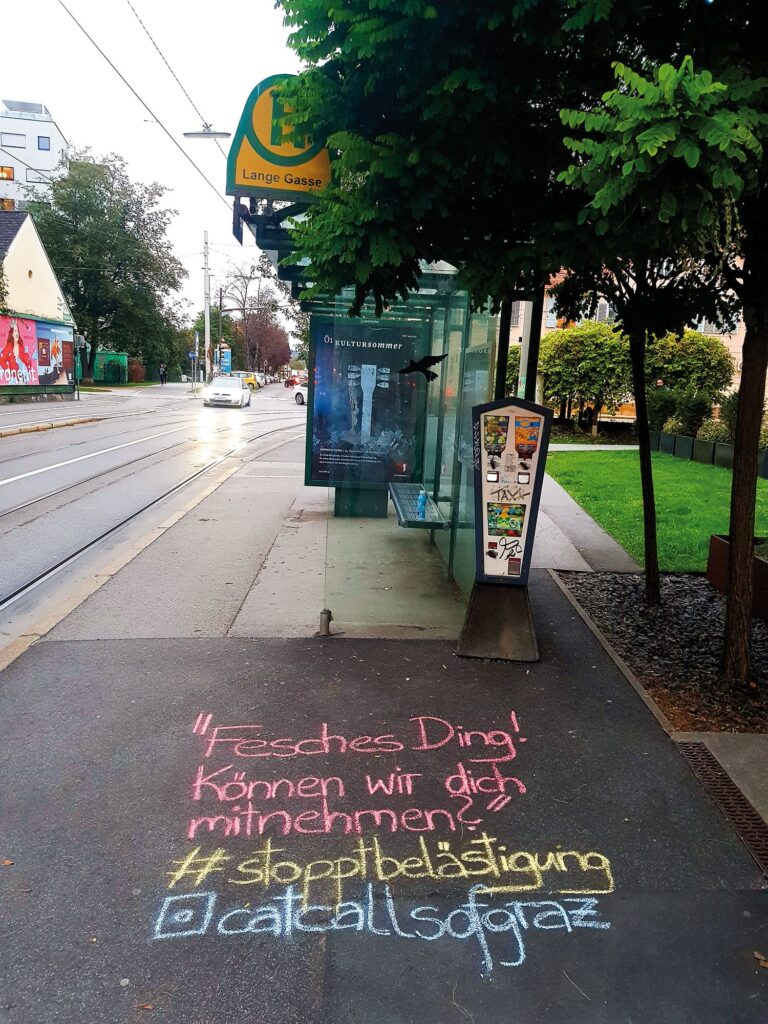 H
Lange Gasse
KULTURSOMMER
TAXX
"Fesches Ding!
Können wir dich
mitnehmen?"
#stopptbelästigung
catcallsofgraz